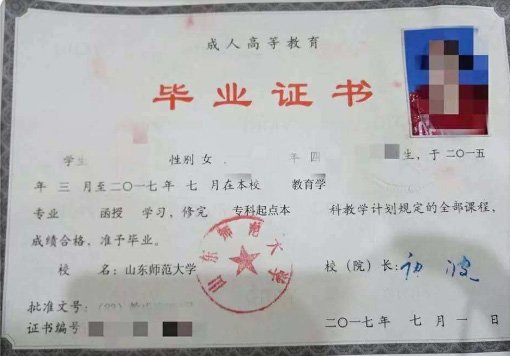 成人高等教育
毕业证书
学生 性别 女 . 年 四 生，于 二〇一五
年 三 月至二〇一七年 七 月在本校 教育学
专业 函授 学习，修完 专科起点本 科教学计划规定的全部课程，
成绩合格，准予毕业。
校 名：山东师范大学 校（院）长：
山东师范大学
批准文号：
证书编号 二〇一七年 七 月 一 日